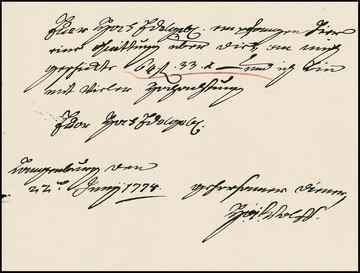 Euer HochEdelgeb. empfangen hier
eine Quittung über die an mich
geschickte 33. x und ich bin
mit vieler Hochachtung
Euer HochEdelgeb.
Langenburg den
22. Junij 1778
gehorsamer Diener